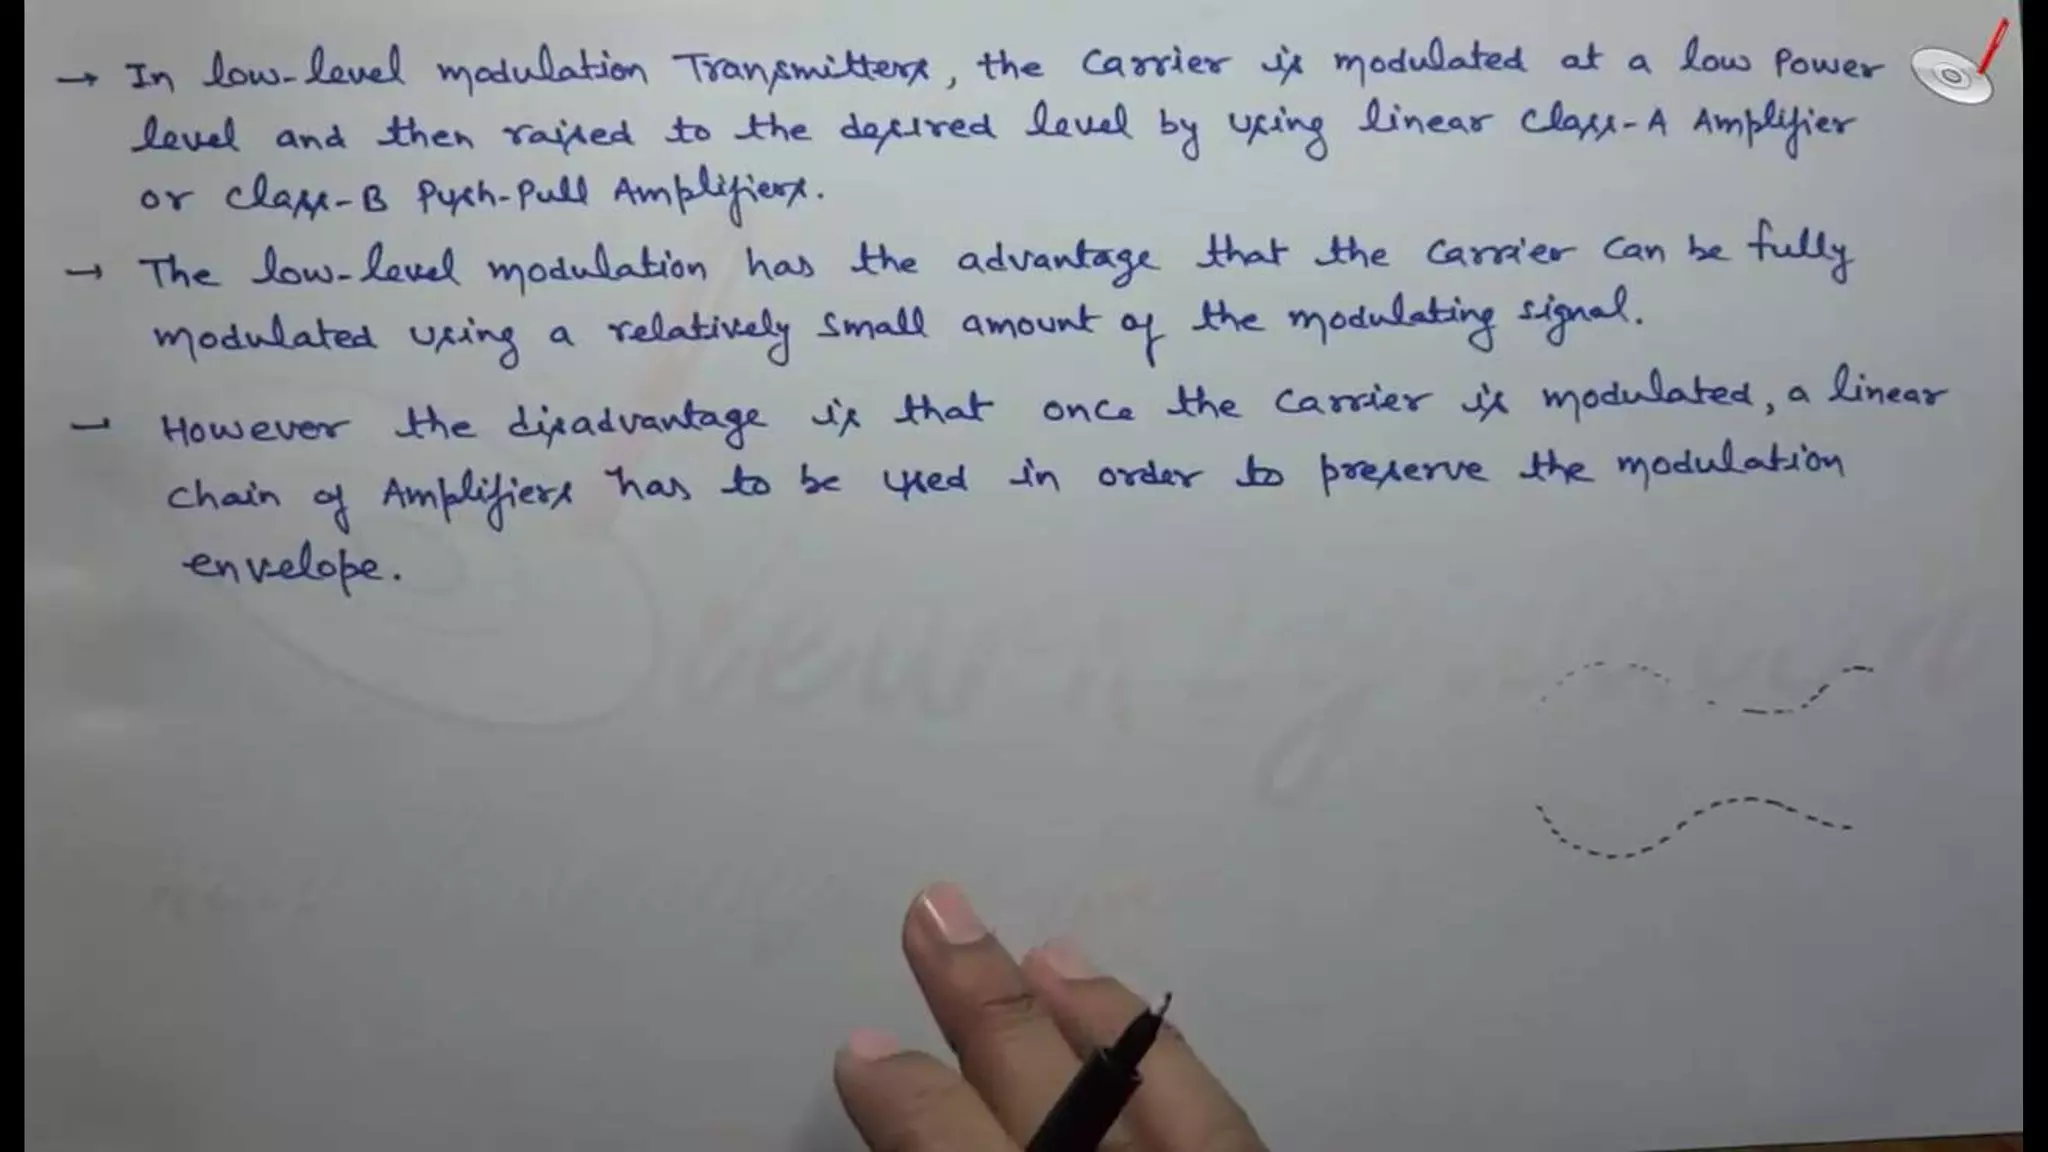 → In low-level modulation Transmitters, the carrier is modulated at a low power
level and then raised to the desired level by using linear class-A Amplifier
or class-B Push-Pull Amplifiers.
→ The low-level modulation has the advantage that the carrier can be fully
modulated using a relatively small amount of the modulating signal.
→ However the disadvantage is that once the carrier is modulated, a linear
chain of Amplifiers has to be used in order to preserve the modulation
envelope.